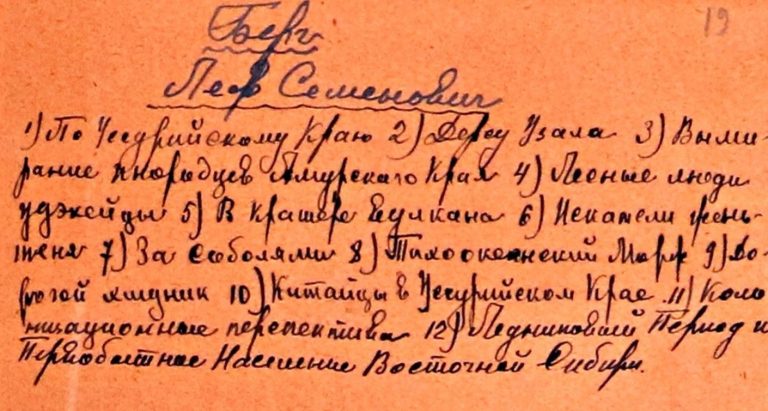 19
Берг
Лев Семенович
1) По Уссурийскому Краю 2) Дерсу Узала 3) Выми-
рание инородцев Амурского Края 4) Лесные люди
удэхейцы 5) В кратере вулкана 6) Искатели жень-
шеня 7) За соболями 8) Тихоокеанский Морж 9) До-
рогой хищник 10) Китайцы в Уссурийском Крае 11) Коло
низационные перспективы 12) Ледниковый Период и
Первобытное Население Восточной Сибири.